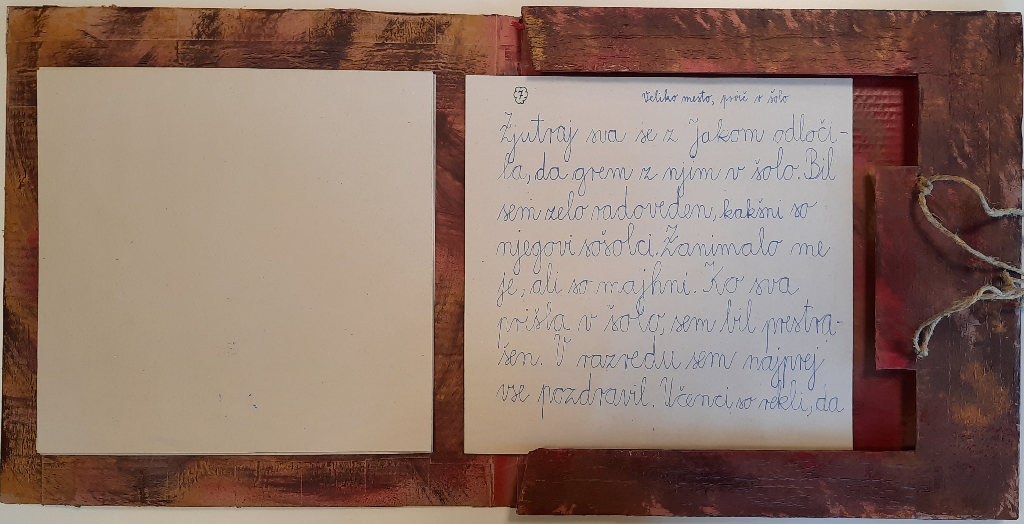 7
Veliko mesto, prvič v šolo
Zjutraj sva se z Jakom odloči-
la, da grem z njim v šolo. Bil
sem zelo radoveden, kakšni so
njegovi sošolci. Zanimalo me
je, ali so majhni. Ko sva
prišla v šolo, sem bil prestra-
šen. V razredu sem najprej
vse pozdravil. Učenci so rekli, da